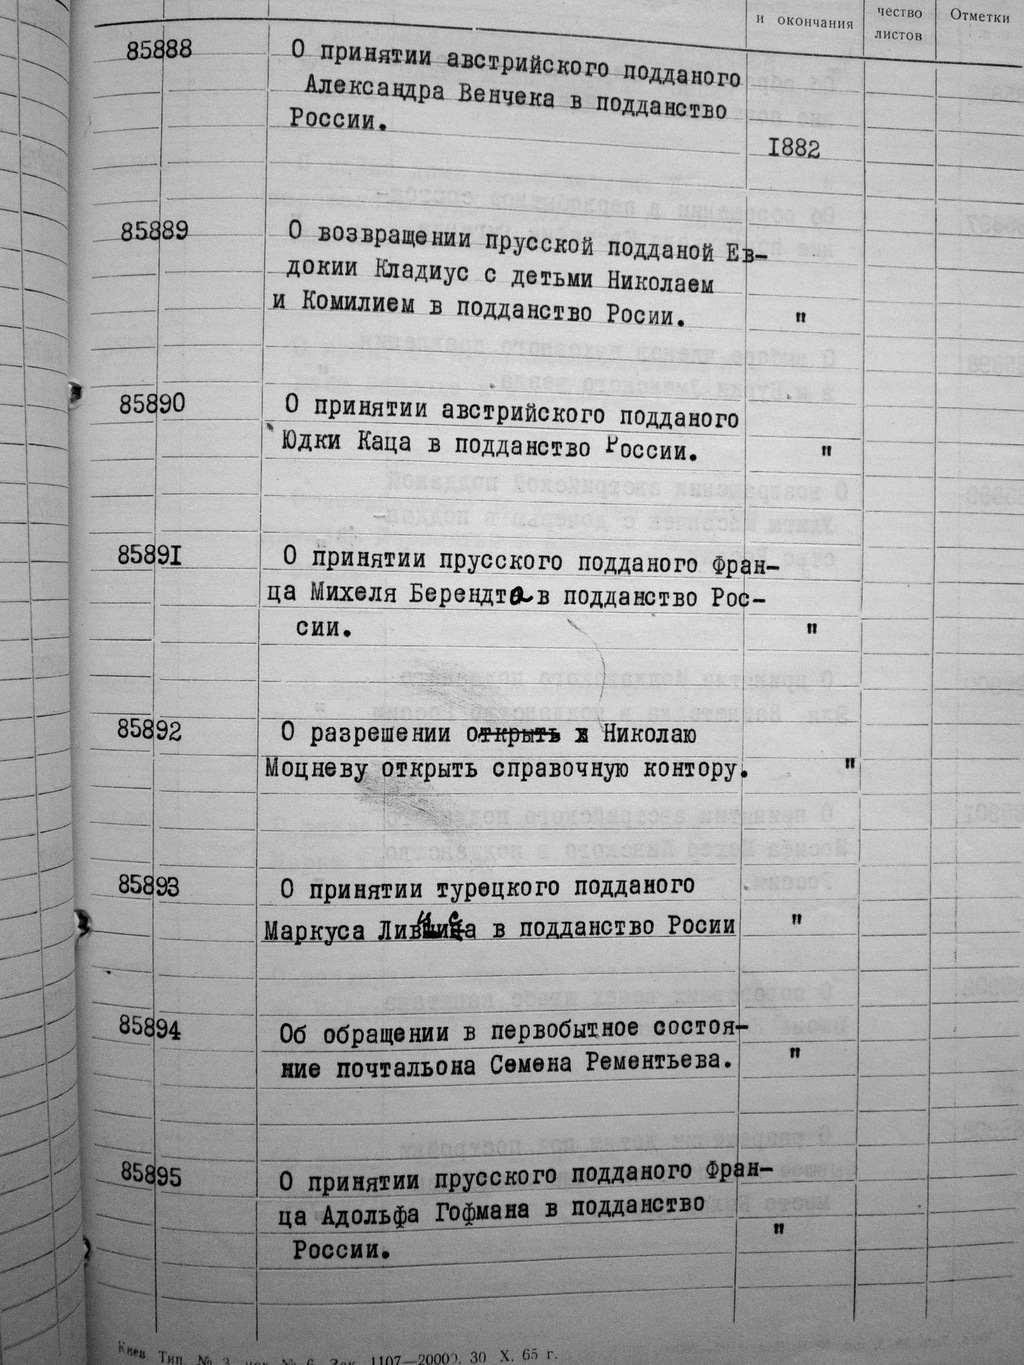 и окончания
чество
листов
Отметки
85888
О принятии австрийского подданого
Александра Венчека в подданство
России.
1882
85889
О возвращении прусской подданой Ев-
докии Кладиус с детьми Николаем
и Комилием в подданство Росии.
"
85890
О принятии австрийского подданого
Юдки Каца в подданство России.
"
85891
О принятии прусского подданого Фран-
ца Михеля Берендта в подданство Рос-
сии.
"
85892
О разрешении открыть Николаю
Моцневу открыть справочную контору.
"
85893
О принятии турецкого подданого
Маркуса в подданство Росии
"
85894
Об обращении в первобытное состоя-
ние почтальона Семена Рементьева.
"
85895
О принятии прусского подданого Фран-
ца Адольфа Гофмана в подданство
России.
"
Киев Тип. № 3 № 6 Зак. 1107—20000. 30 X. 65 г.